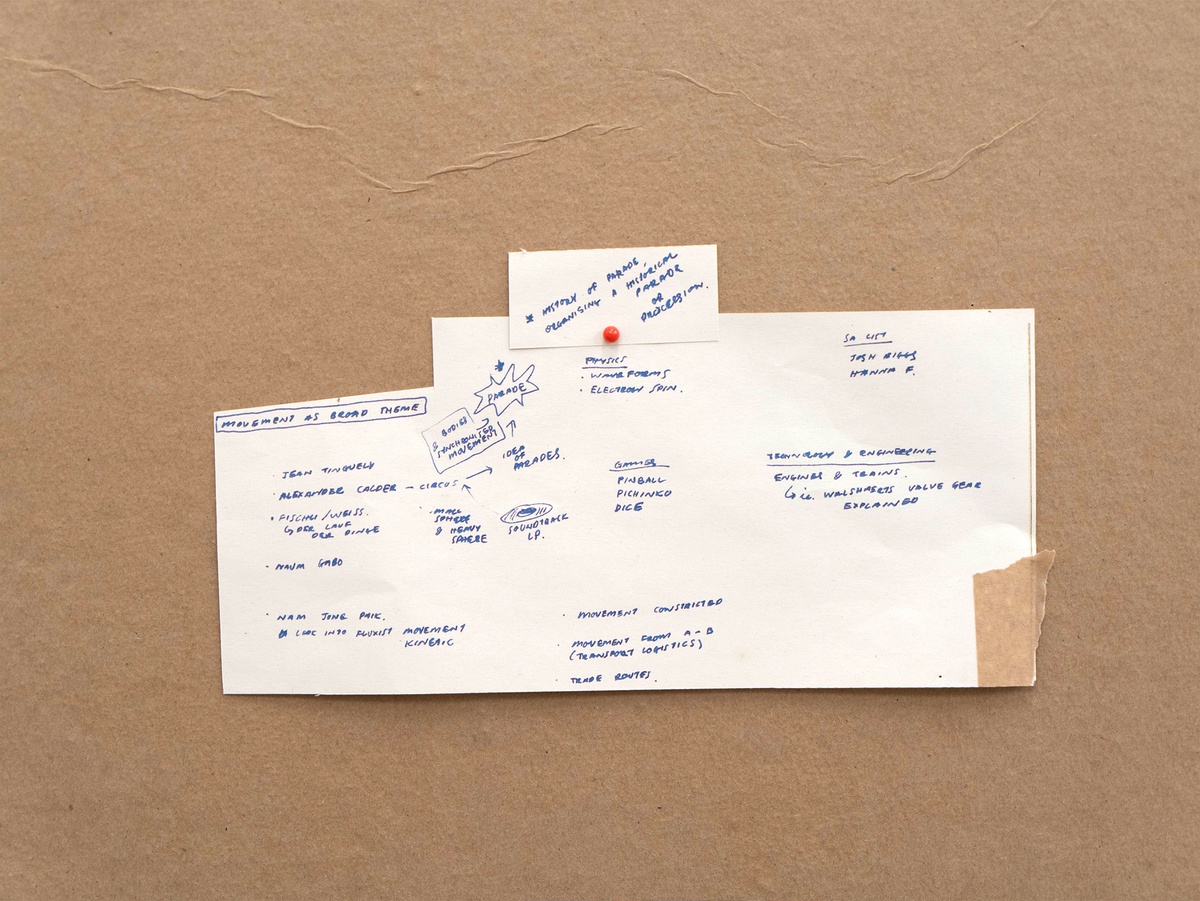 * HISTORY OF PARADE,
ORGANISING A HISTORICAL
PARADE
OR
PROCESSION.
MOVEMENT AS BROAD THEME
· JEAN TINGUELY
· ALEXANDER CALDER – CIRCUS
· FISCHLI/WEISS.
↳ DER LAUF
DER DINGE
· NAUM GABO
· NAM JUNE PAIK.
LOOK INTO FLUXIST MOVEMENT
KINETIC
* PARADE
& BODIES
SYNCHRONISED
MOVEMENT
IDEA
OF
PARADES.
· SMALL
SPHERE
& HEAVY
SPHERE
SOUNDTRACK
LP.
PHYSICS
· WAVEFORMS
· ELECTRON SPIN.
GAMES
PINBALL
PICHINKO
DICE
· MOVEMENT CONSTRICTED
· MOVEMENT FROM A-B
(TRANSPORT LOGISTICS)
· TRADE ROUTES.
SA LIST
JOSH BIGGS
HANNA F.
TECHNOLOGY & ENGINEERING
ENGINES & TRAINS.
↳ i.e. WALSHAERTS VALVE GEAR
EXPLAINED